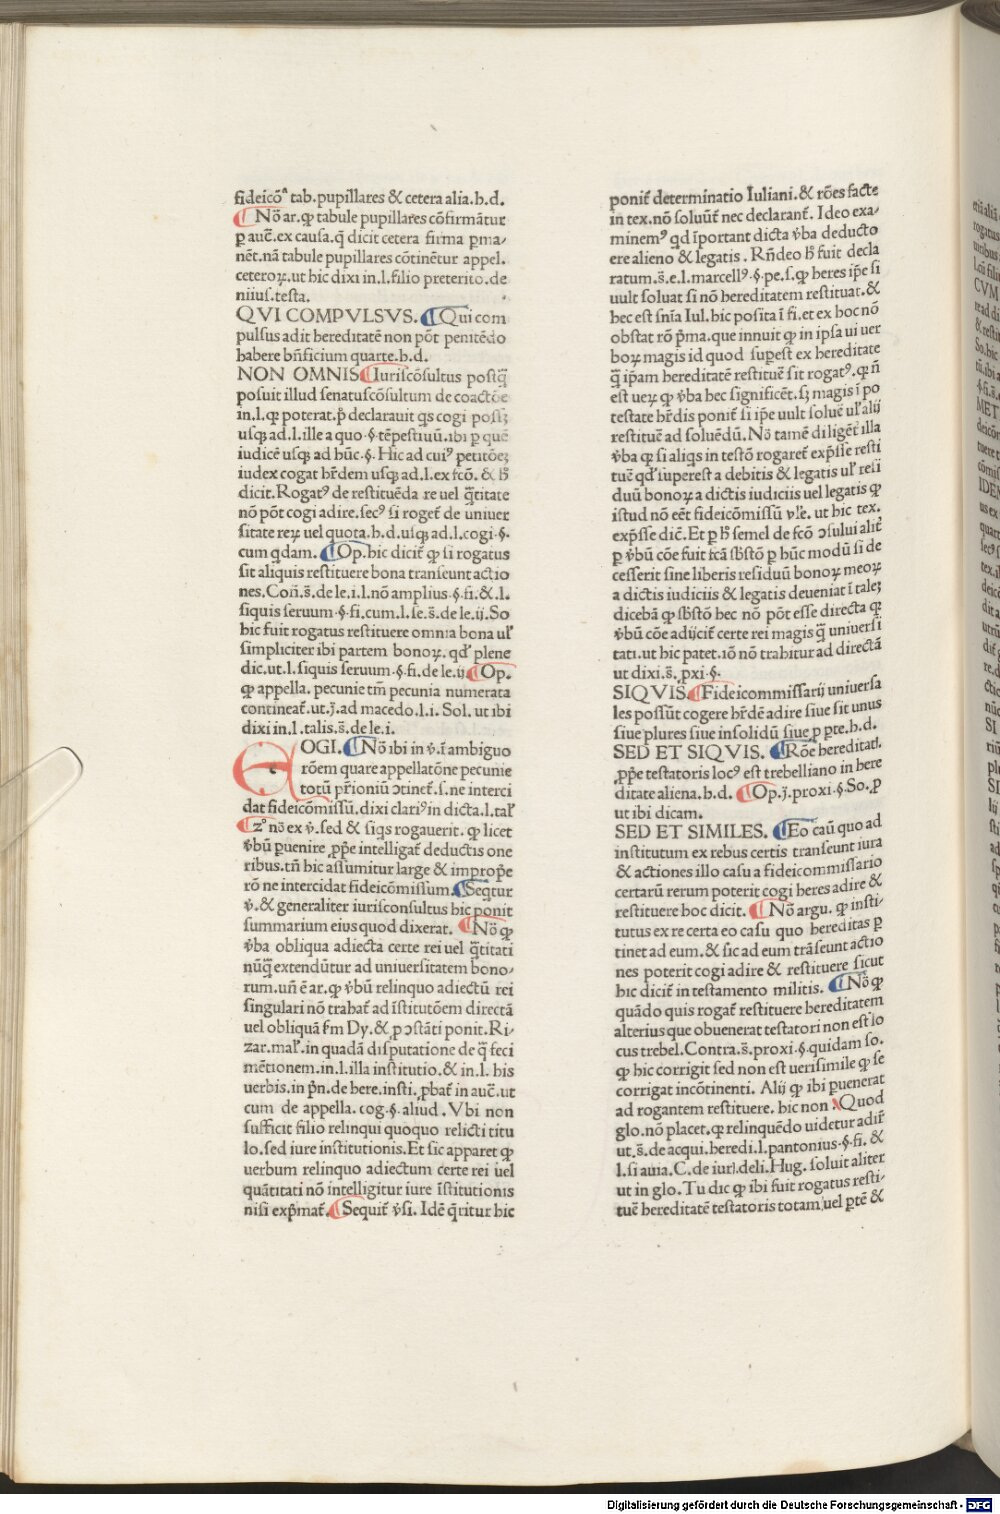 fideicō⁹ tab. pupillares & cetera alia. h. d.
¶ Nō ar. ꝙ tabule pupillares cōfirmātur
ꝑ auc̄. ex causa. q̄ dicit cetera firma ꝑma-
nēt. nā tabule pupillares cōtinētur appel.
ceteroꝝ. ut hic dixi in. l. filio preterito. de
niius. testa.
QVI COMPVLSVS. ¶ Qui com
pulsus adit hereditatē non pōt penitēdo
habere bn̄ficium quarte. h. d.
NON OMNIS ¶ Iuriscōsultus postq̄
posuit illud senatuscōsultum de coactōe
in. l. ꝙ poterat. p̄ declarauit qs cogi possꝫ
usqꝫ ad. l. ille a quo. §. tēpestiuū. ibi ꝑ quē
iudicē usqꝫ ad hūc. §. Hic ad cui⁹ petitōeꝫ
iudex cogat hr̄dem usqꝫ ad. l. ex fcō. & h̄
dicit. Rogat⁹ de restituēda re uel q̄titate
nō pōt cogi adire. sec⁹ si roget̄ de uniuer
sitate reꝝ uel quota. h. d. usqꝫ ad. l. cogi. §.
cum qdam. ¶ Op. hic dicit̄ ꝙ si rogatus
sit aliquis restituere bona transeunt actio
nes. Con̄. s̄. de le. i. l. nō amplius. §. fi. & l.
siquis seruum. §. fi. cum. l. se. s̄. de le. ij. So
hic fuit rogatus restituere omnia bona ul'
simpliciter ibi partem bonoꝝ. qd' plene
dic. ut. l. siquis seruum. §. fi. de le. ij ¶ Op.
ꝙ appella. pecunie tm̄ pecunia numerata
contineat̄. ut. j. ad macedo. l. i. Sol. ut ibi
dixi in. l. talis. s̄. de le. i.
COGI. ¶ Nō ibi in ꝟ. ī ambiguo
rōem quare appellatōne pecunie
totū pr̄ioniū ɔtinet̄. s. ne interci
dat fideicōmissū. dixi clari⁹ in dicta. l. tal'
¶ 2° nō ex ꝟ. sed & siqs rogauerit. ꝙ licet
ꝟbū ꝑuenire ꝓpe intelligat̄ deductis one
ribus. tn̄ hic assumitur large & improp̄e
rō ne intercidat fideicōmissum. ¶ Seqtur
ꝟ. & generaliter iurisconsultus hic ponit
summarium eius quod dixerat. ¶ Nō ꝙ
ꝟba obliqua adiecta certe rei uel q̄titati
nūq̄ extendūtur ad uniuersitatem bono-
rum. un̄ ē ar. ꝙ ꝟbū relinquo adiectū rei
singulari nō trahat̄ ad īstitutōem directā
uel obliquā fm Dy. & ꝑ ɔstāti ponit. Ri-
zar. mal'. in quadā disputatione de q̄ feci
mētionem. in. l. illa institutio. & in. l. his
uerbis. in p̄n. de here. insti. ꝓbat̄ in auc̄. ut
cum de appella. cog. §. aliud. Vbi non
sufficit filio relinqui quoquo relicti titu
lo. sed iure institutionis. Et sic apparet ꝙ
uerbum relinquo adiectum certe rei uel
quātitati nō intelligitur iure īstitutionis
nisi exp̄mat̄. ¶ Sequit̄ ꝟsi. Idē q̄ritur hic
ponit̄ determinatio Iuliani. & rōes facte
in tex. nō soluūt̄ nec declarant̄. Ideo exa-
minem⁹ qd īportant dicta ꝟba deducto
ere alieno & legatis. Rn̄deo h̄ fuit decla
ratum. s̄. e. l. marcell⁹. §. pe. s. ꝙ heres ip̄e si
uult soluat si nō hereditatem restituat. &
hec est sn̄ia Iul. hic posita ī fi. et ex hoc nō
obstat rō p̄ma. que innuit ꝙ in ipsa ui uer
boꝝ magis id quod suꝑest ex hereditate
q̄ ip̄am hereditatē restituē sit rogat⁹. ꝙ n̄
est ueꝝ ꝙ ꝟba hec significēt. sꝫ magis ī po
testate hr̄dis ponit̄ si ip̄e uult soluē ul' alij
restituē ad soluēdū. Nō tamē diligēt̄ illa
ꝟba ꝙ si aliqs in testō rogaret̄ exp̄sse resti
tuē qd' suꝑerest a debitis & legatis ul' resi
duū bonoꝝ a dictis iudiciis uel legatis ꝙ
istud nō eēt fideicōmissū ꝟl'e. ut hic tex.
exp̄sse dic̄. Et ꝑ h̄ semel de fcō ɔsului alit̄
ꝑ ꝟbū cōe fuit fcā sb̄stō ꝑ hūc modū si de
cesserit sine liberis residuū bonoꝝ meoꝝ
a dictis iudiciis & legatis deueniat ī taleꝫ
dicebā ꝙ sb̄stō hec nō pōt esse directa qꝛ
ꝟbū cōe adijcit̄ certe rei magis q̄ uniuersi
tati. ut hic patet. iō nō trahitur ad directā
ut dixi. s̄. ꝓxi. §.
SIQVIS. ¶ Fideicommissarij uniuersa
les possūt cogere hr̄dē adire siue sit unus
siue plures siue insolidū siue ꝑ pte. h. d.
SED ET SIQVIS. ¶ Rōe hereditat̄.
ꝓp̄e testatoris loc⁹ est trebelliano in here
ditate aliena. h. d. ¶ Op. j. proxi. §. So. ꝑ
ut ibi dicam.
SED ET SIMILES. ¶ Eo caū quo ad
institutum ex rebus certis transeunt iura
& actiones illo casu a fideicommissario
certarū rerum poterit cogi heres adire &
restituere hoc dicit. ¶ Nō argu. ꝙ insti-
tutus ex re certa eo casu quo hereditas ꝑ
tinet ad eum. & sic ad eum trāseunt actio
nes poterit cogi adire & restituere sicut
hic dicit̄ in testamento militis. ¶ Nō ꝙ
quādo quis rogat̄ restituere hereditatem
alterius que obuenerat testatori non est lo
cus trebel. Contra. s̄. proxi. §. quidam so.
ꝙ hic corrigit sed non est uerisimile ꝙ se
corrigat incōtinenti. Alij ꝙ ibi ꝑuenerat
ad rogantem restituere. hic non. ¶ Quod
glo. nō placet. ꝙ relinquēdo uidetur adir̄
ut. s̄. de acqui. heredi. l. pantonius. §. fi. &
l. si auia. C. de iur. deli. Hug. soluit aliter
ut in glo. Tu dic ꝙ ibi fuit rogatus resti-
tuē hereditatē testatoris totam uel ꝑtē &
Digitalisierung gefördert durch die Deutsche Forschungsgemeinschaft - DFG